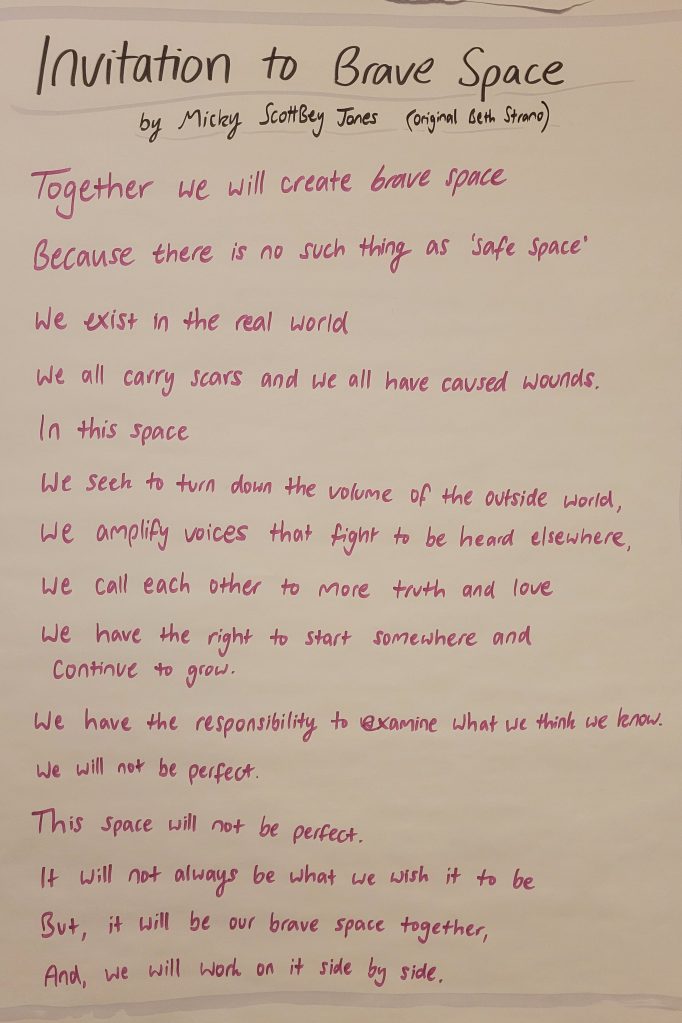 Invitation to Brave Space
by Micky ScottBey Jones (original Beth Strano)
Together we will create brave space
Because there is no such thing as 'safe space'
We exist in the real world
We all carry scars and we all have caused wounds.
In this space
We seek to turn down the volume of the outside world,
We amplify voices that fight to be heard elsewhere,
We call each other to more truth and love
We have the right to start somewhere and
continue to grow.
We have the responsibility to examine what we think we know.
We will not be perfect.
This space will not be perfect.
It will not always be what we wish it to be
But, it will be our brave space together,
And, we will work on it side by side.